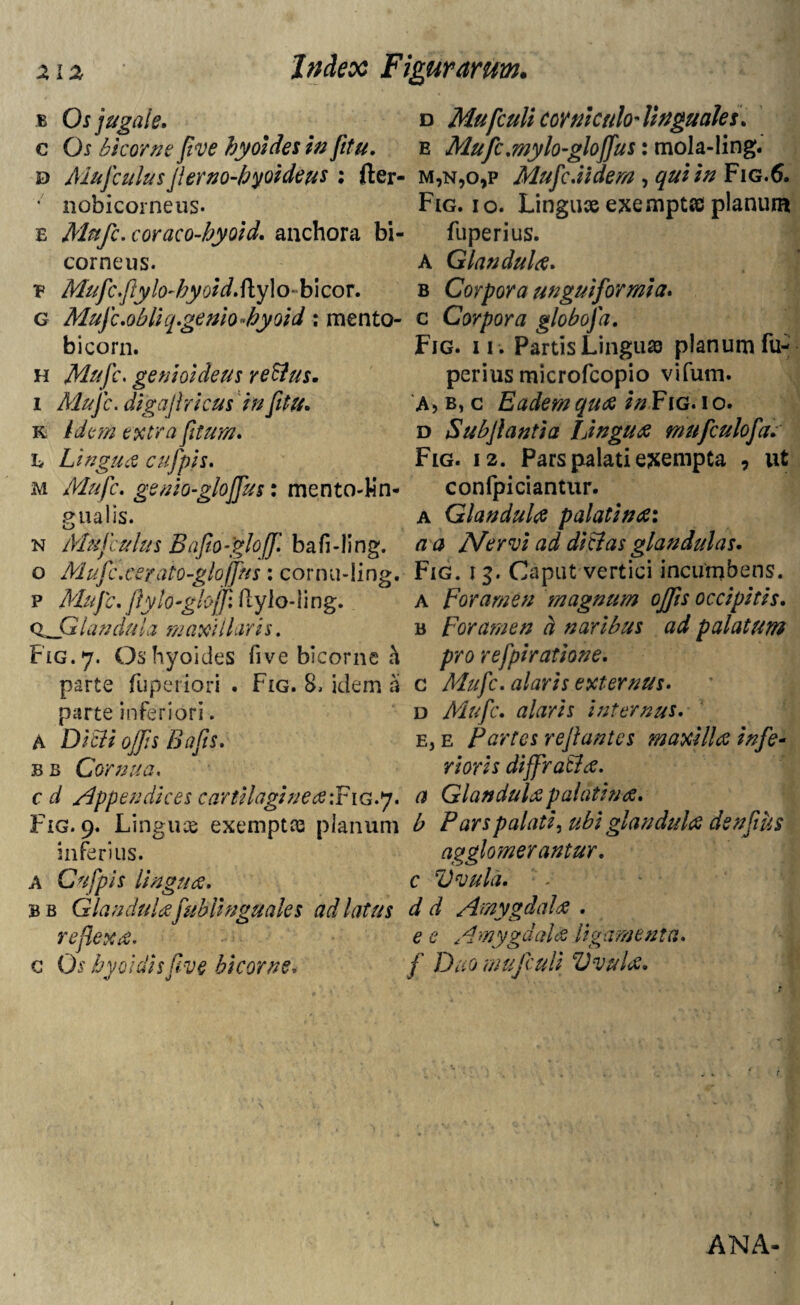 212 Index Figurarum.
B Os jugale.
C Os bicorne ſive hyoides in ſitu.
D Muſculus ſterno-hyoideus : ſter-
nobicorneus.
E Muſc. coraco-hyoid. anchora bi-
corneus.
F Muſc.ſtylo-hyoid.ſtylo-bicor.
G Muſc.obliq.genio-hyoid : mento-
bicorn.
H Muſc. genioideus rectus.
I Muſc. digaſtricus in ſitu.
K Idem extra ſitum.
L Linguæ cuſpis.
M Muſc. genio-gloſſus : mento-lin-
gualis.
N Muſculus Baſio-gloſſ. baſi-ling.
O Muſc.cerato-gloſſus : cornu-ling.
P Muſc. ſtylo-gloſſ: ſtylo-ling.
Q Glandula maxillaris.
FIG. 7. Os hyoides ſive bicorne à
parte ſuperiori . FIG. 8. idem à
parte inferiori.
A Dicti oſſis Baſis.
B B Cornua.
c d Appendices cartilagineæ:FIG.7.
FIG. 9. Linguæ exemptæ planum
inferius.
A Cuſpis linguæ.
B B Glandulæ ſublinguales ad latus
reflexæ.
C Os hyoidis ſive bicorne.
D Muſculi corniculo-linguales.
E Muſc.mylo-gloſſus : mola-ling.
M,N,O,P Muſc.iidem , qui in FIG.6.
FIG. 10. Linguæ exemptæ planum
ſuperius.
A Glandulæ.
B Corpora unguiformia.
C Corpora globoſa.
FIG. 11. Partis Linguæ planum ſu-
perius microſcopio viſum.
A, B, C Eadem quæ in FIG. 10.
D Subſtantia Linguæ muſculoſa.
FIG. 12. Pars palati exempta , ut
conſpiciantur.
A Glandulæ palatinæ:
a a Nervi ad dictas glandulas.
FIG. 13. Caput vertici incumbens.
A Foramen magnum oſſis occipitis.
B Foramen à naribus ad palatum
pro reſpiratione.
C Muſc. alaris externus.
D Muſc. alaris internus.
E, E Partes reſtantes maxillæ infe-
rioris diffractæ.
a Glandulæ palatinæ.
b Pars palati, ubi glandulæ denſius
agglomerantur.
c Vvula.
d d Amygdalæ .
e e Amygdalæ ligamenta.
f Duo muſculi Vvulæ.
ANA-